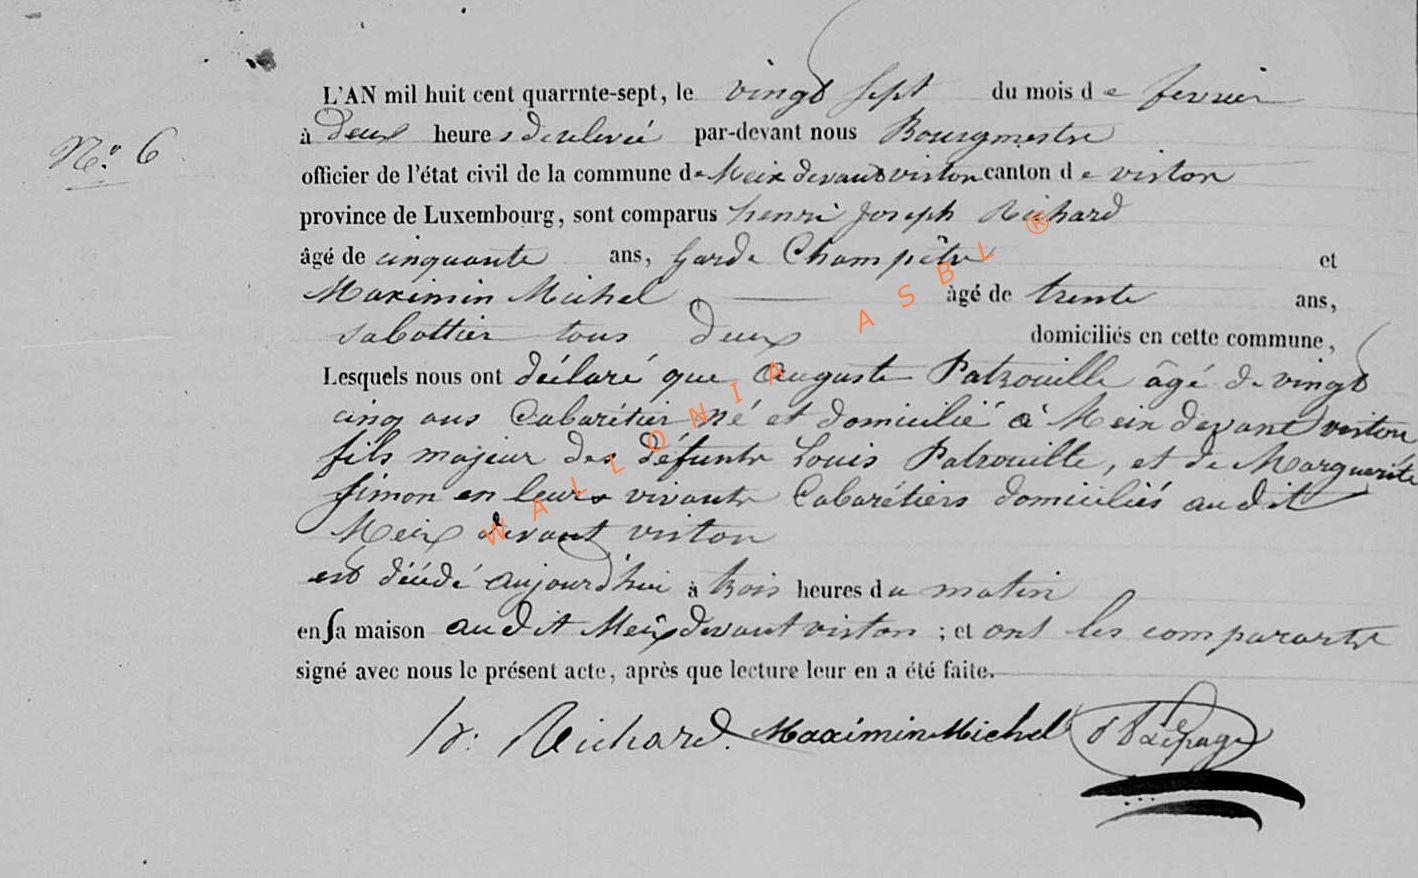 N.º 6
L'AN mil huit cent quarrnte-sept, le vingt sept du mois de fevrier
à Deux heures de relevée par-devant nous Bourgmestre
officier de l'état civil de la commune de Meix devant virton canton de virton
province de Luxembourg, sont comparus henri joseph Richard
âgé de cinquante ans, garde Champêtre et
Maximin Michel âgé de trente ans,
sabottier tous deux domiciliés en cette commune,
Lesquels nous ont déclaré que Auguste Patrouille âgé de vingt
cinq ans Cabarétier né et domicilié à Meix devant virton
fils majeur des défunts Louis Patrouille, et de Marguerite
simon en leurs vivants Cabarétiers domiciliés audit
Meix devant virton
est décédé aujourd'hui à trois heures du matin
en sa maison audit Meix devant virton ; et ont les comparants
signé avec nous le présent acte, après que lecture leur en a été faite.
h: Richard. Maximin Michel Lepage
WALLONIA ASBL ®